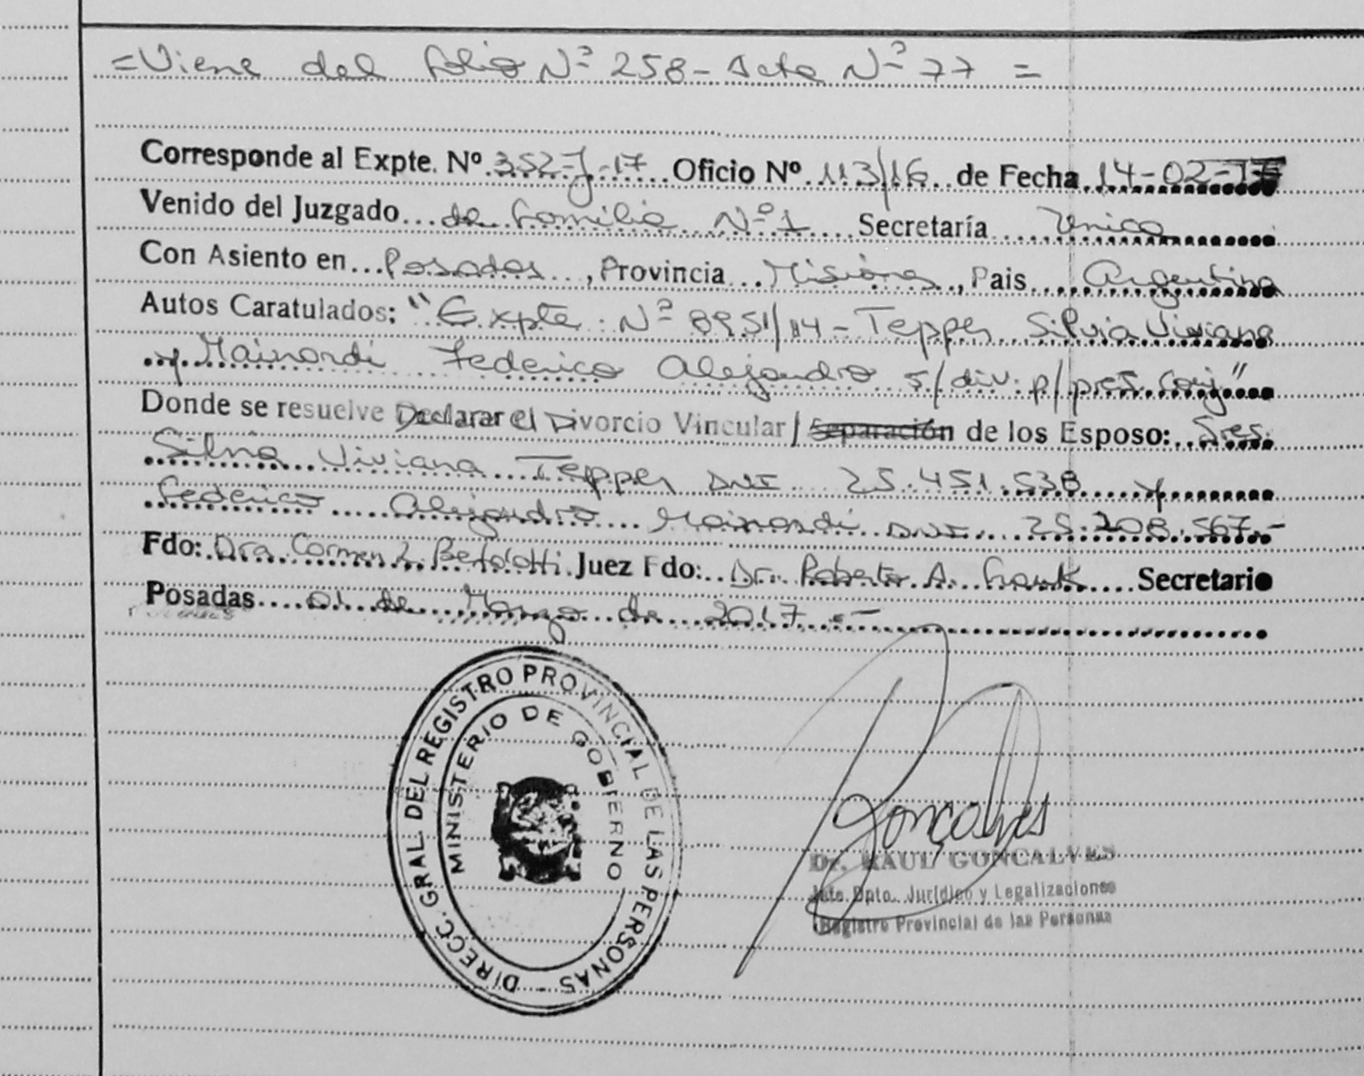 = Viene del folio Nº 258 - Acta Nº 77 =
Corresponde al Expte. Nº 352-J-17 Oficio Nº 113/16 de Fecha 14-02-17
Venido del Juzgado de Familia Nº 1 Secretaría Unica
Con Asiento en Posadas, Provincia Misiones, Pais Argentina
Autos Caratulados: "Expte. Nº 8951/14 - Tepper Silvia Viviana
y Mainardi Federico Alejandro s/ div. p/ pres. Conj"
Donde se resuelve Declarar el Divorcio Vincular / Separación de los Esposo: Sres.
Silvia Viviana Tepper DNI 25.451.538 y
Federico Alejandro Mainardi DNI 25.208.567.-
Fdo: Dra. Carmen L. Bertolotti Juez Fdo: Dr. Roberto A. Frank Secretario
Posadas 01 de Marzo de 2017.-
DIRECC. GRAL. DEL REGISTRO PROVINCIAL DE LAS PERSONAS
MINISTERIO DE GOBIERNO
Gonçalves
Dr. RAUL GONCALVES
Jefe Dpto. Jurídico y Legalizaciones
Registro Provincial de las Personas